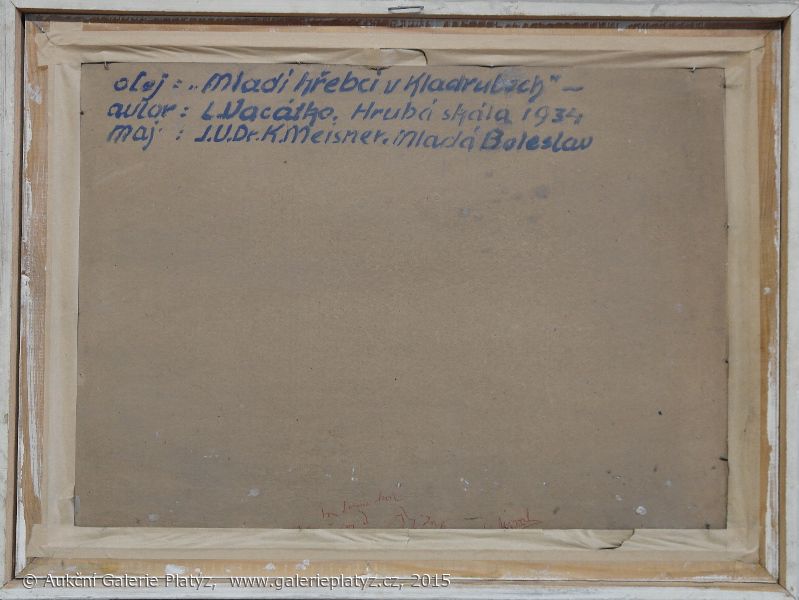 olej : „Mladí hřebci v Kladrubech" —
autor : L. Vacátko. Hrubá skála 1934
maj : J.U.Dr. K. Meisner. Mladá Boleslav
© Aukční Galerie Platýz, www.galerieplatyz.cz, 2015